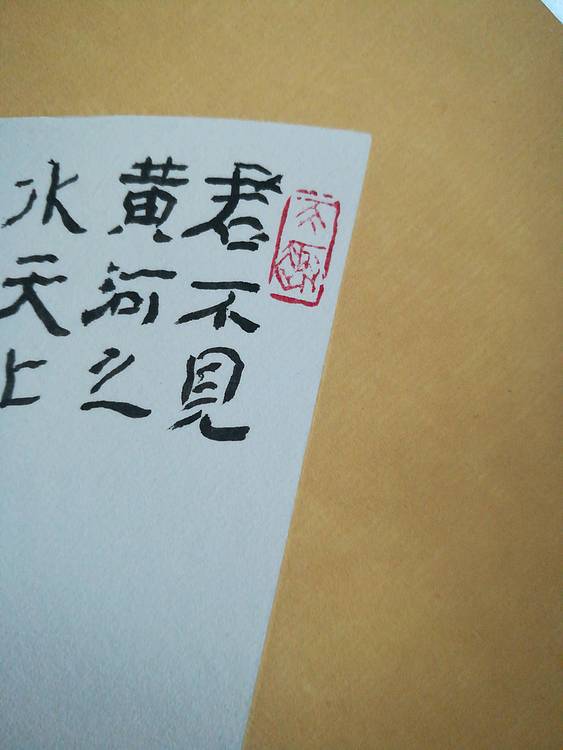 君不見
黄河之
水天上